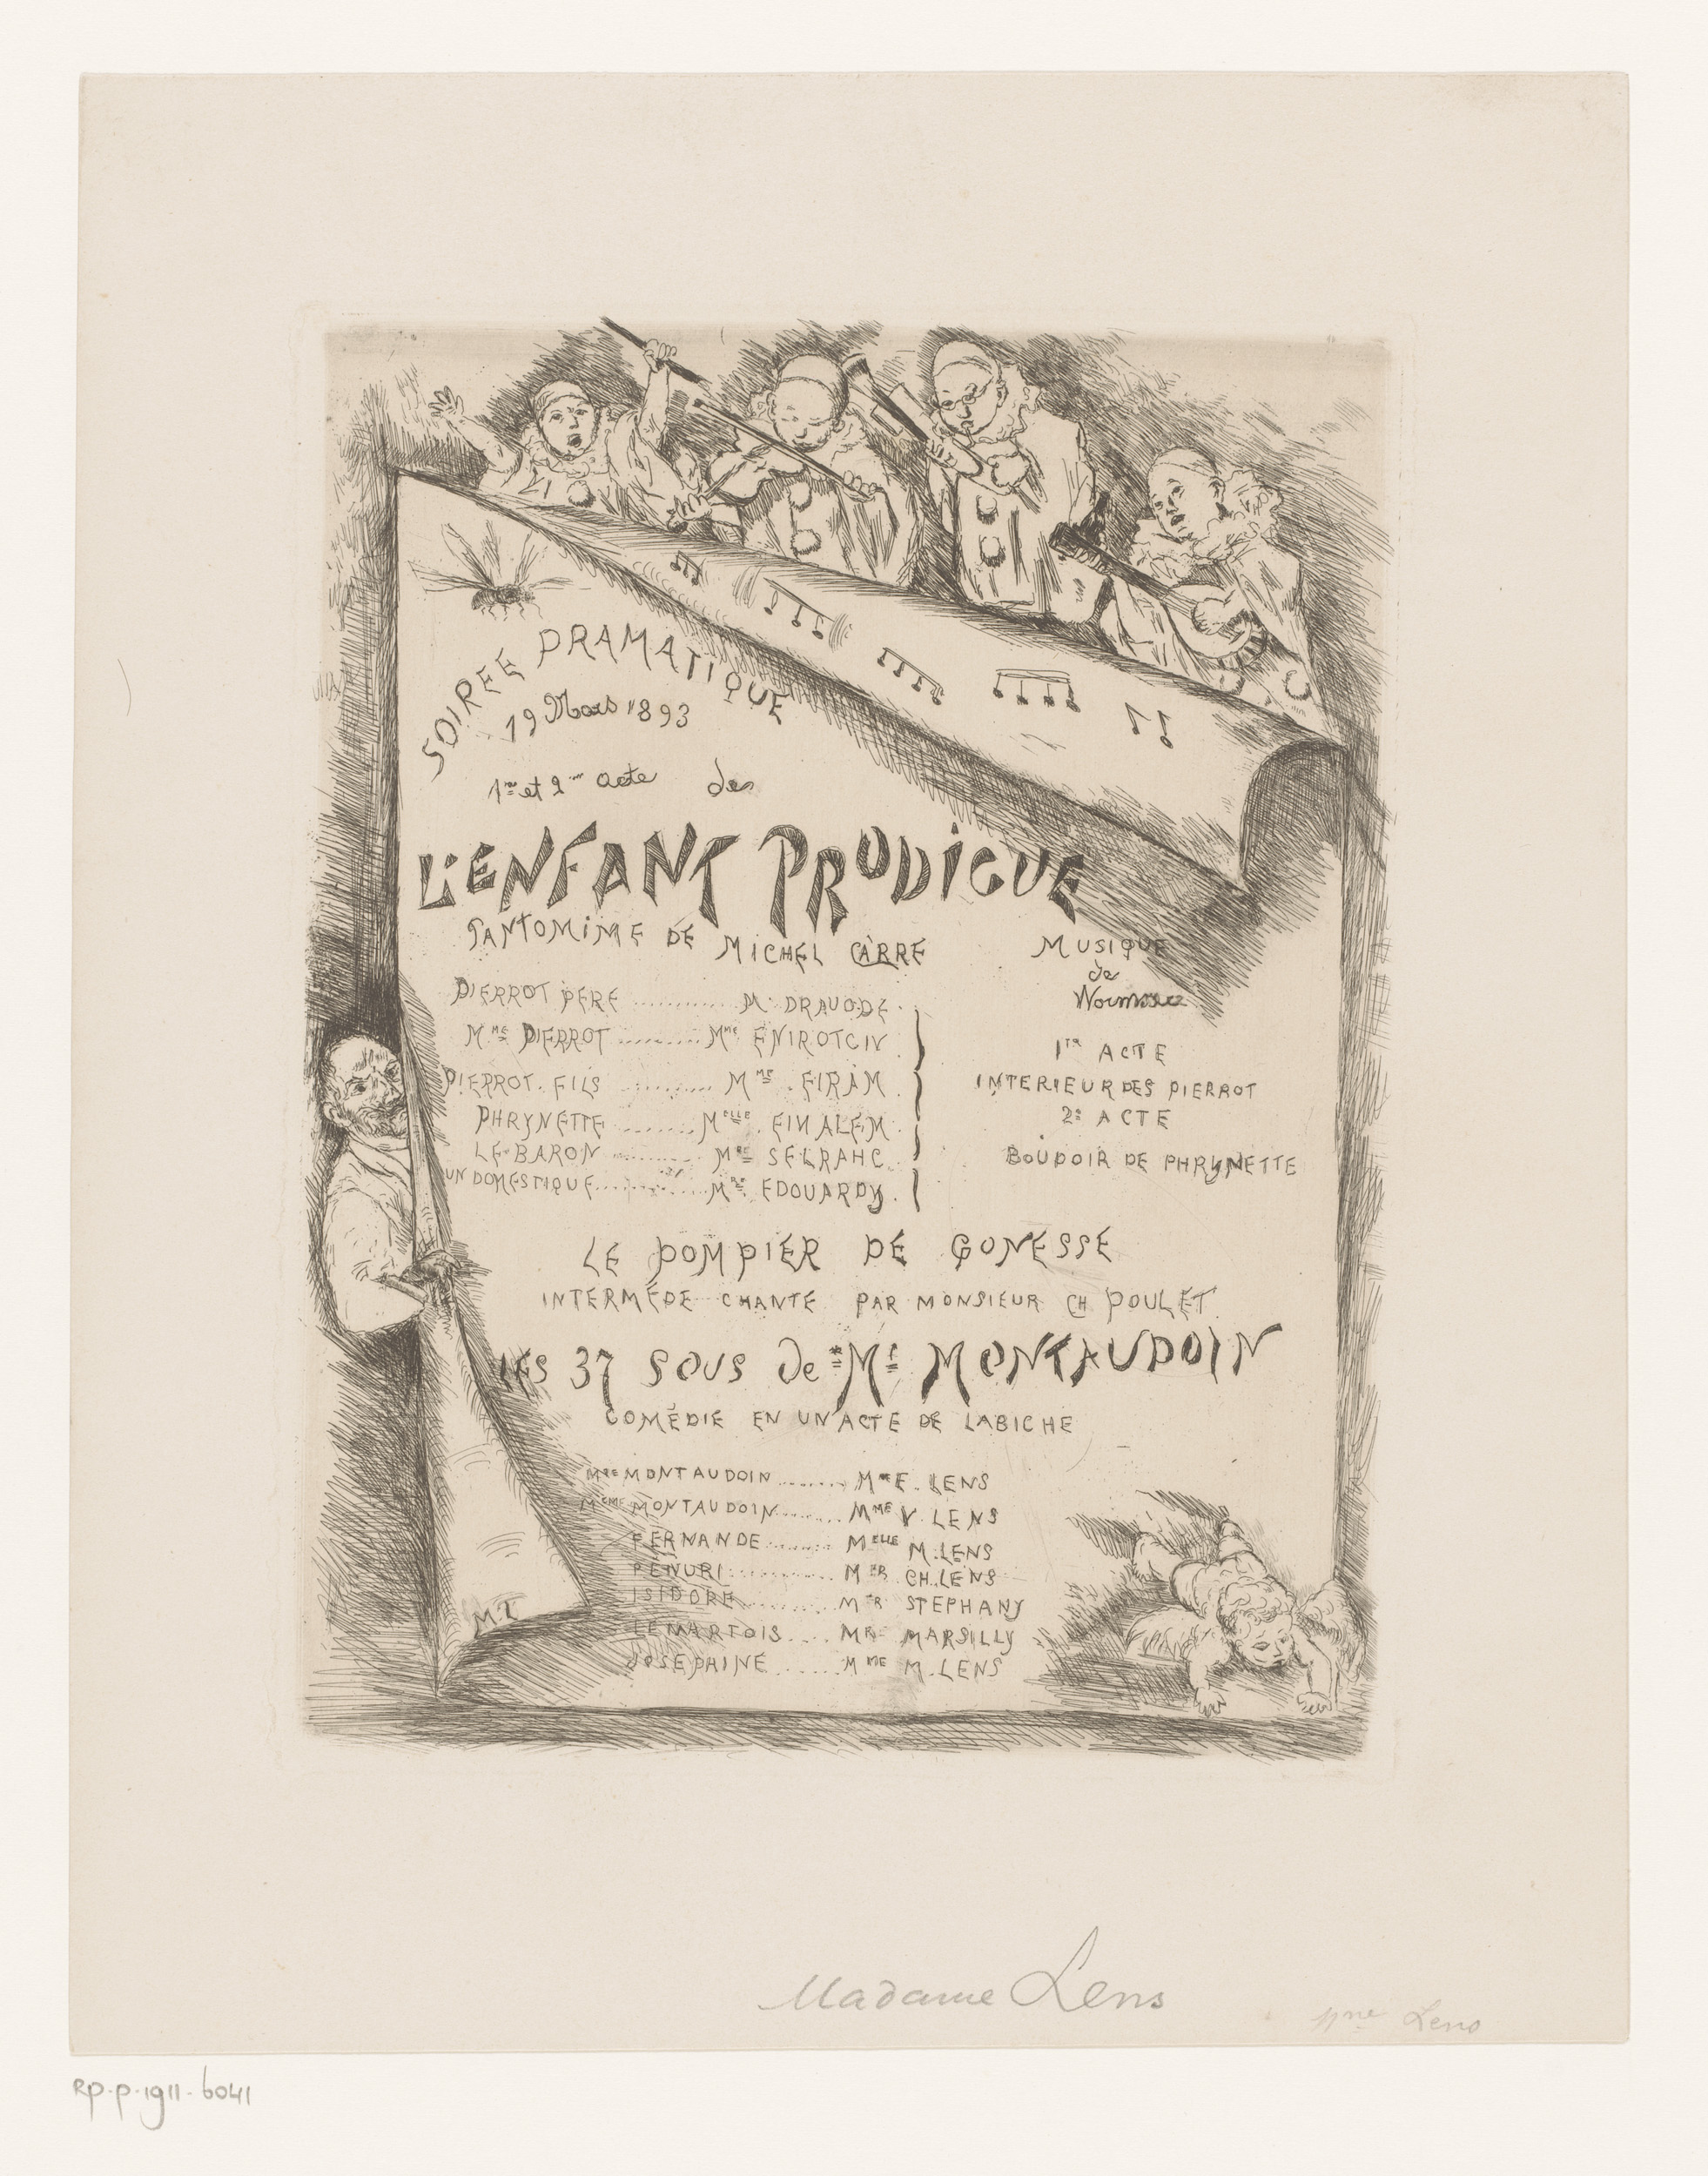 SOIREE DRAMATIQUE
19 Mars 1893
1er et 2me acte de
L'ENFANT PRODIGUE
PANTOMIME DE MICHEL CARRE
MUSIQUE
de
PIERROT PERE ............ M. DRAUODE.
MME PIERROT .......... MME ENIROTCIV
PIERROT. FILS .......... MME . EIRAM
PHRYNETTE ......... MELLE . EINALEM.
LE BARON ......... MRE SELRAHC.
UN DOMESTIQUE............ MRE EDOUARDY.
1ER ACTE
INTERIEUR DES PIERROT
2E ACTE
BOUDOIR DE PHRYNETTE
LE POMPIER DE GONESSE
INTERMÉDE CHANTÉ PAR MONSIEUR CH POULET
LES 37 SOUS de Mr MONTAUDOIN
COMÉDIE EN UN ACTE DE LABICHE
MRE MONTAUDOIN ........ MRE E. LENS
MEME MONTAUDOIN ........ MME V. LENS
FERNANDE ........ MELLE M. LENS
PÉNURI ............ MER CH. LENS
ISIDORE ........... MER STEPHANY
LEMARTOIS.... MRE MARSILLY
JOSEPHINE ........ MME M. LENS
M L
Madame Lens
Mme Lens
RP-P-1911-6041